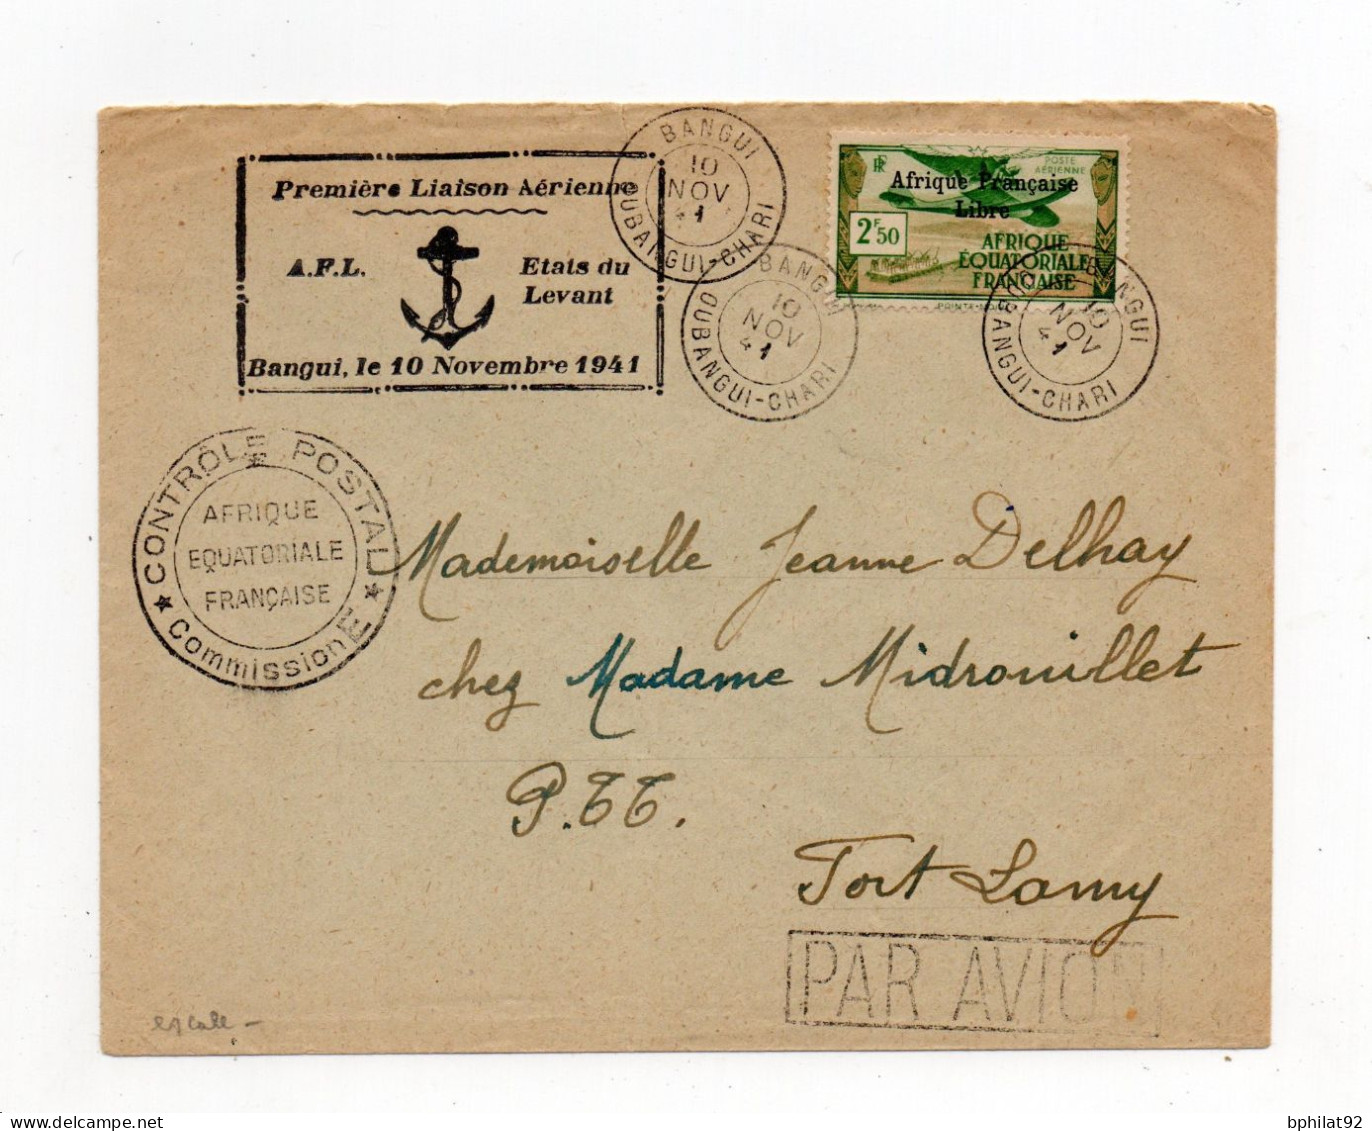 Première Liaison Aérienne
A.F.L.
Etats du
Levant
Bangui, le 10 Novembre 1941
BANGUI
10
NOV
41
OUBANGUI-CHARI
BANGUI
10
NOV
41
OUBANGUI-CHARI
RF
POSTE
AÉRIENNE
Afrique Française
Libre
2F50
AFRIQUE
ÉQUATORIALE
FRANÇAISE
BANGUI
10
NOV
41
OUBANGUI-CHARI
CONTRÔLE POSTAL
AFRIQUE
EQUATORIALE
FRANÇAISE
Commission E
Mademoiselle Jeanne Delhay
chez Madame Midrouillet
P.TT.
Fort Lamy
PAR AVION
escale -
bphilat92